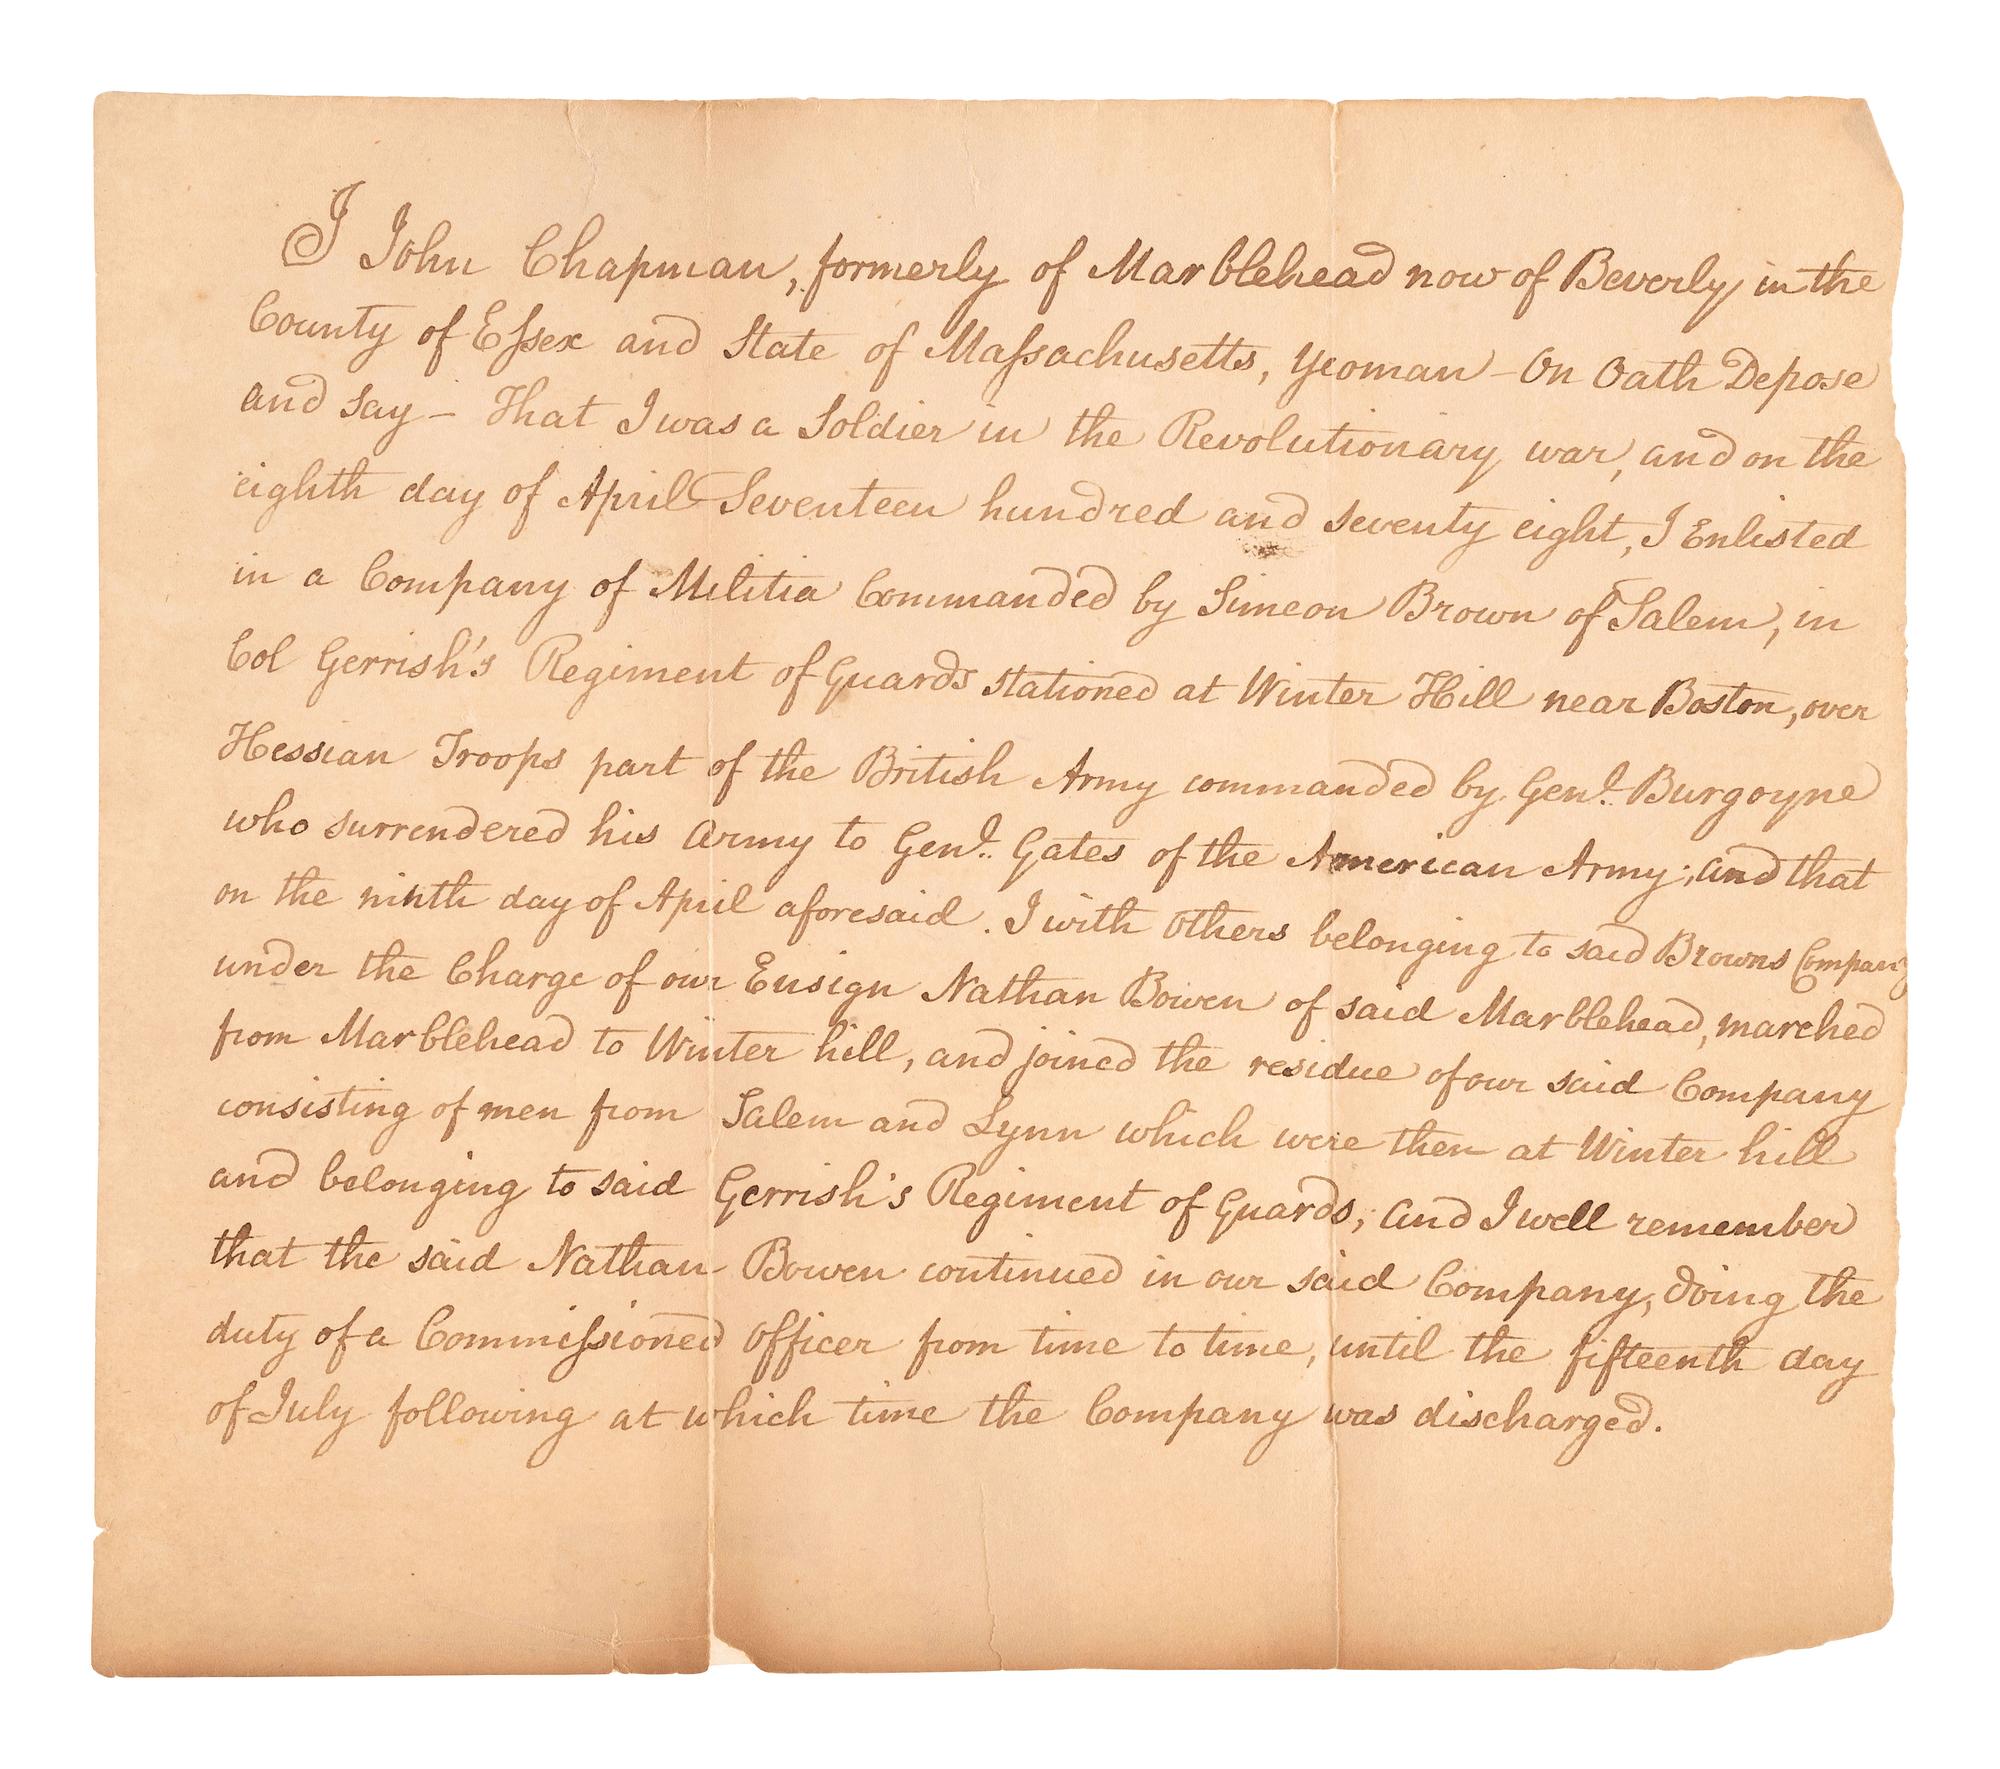 I John Chapman, formerly of Marblehead now of Beverly in the
County of Eſsex and State of Maſsachusetts, yeoman – On Oath Depose
and say – That I was a Soldier in the Revolutionary war, and on the
eighth day of April Seventeen hundred and seventy eight, I Enlisted
in a Company of Militia Commanded by Simeon Brown of Salem, in
Col Gerrish's Regiment of Guards stationed at Winter Hill near Boston, over
Hessian Troops part of the British Army commanded by Genl. Burgoyne
who surrendered his Army to Genl. Gates of the American Army; and that
on the ninth day of April aforesaid. I with others belonging to said Browns Company
under the Charge of our Ensign Nathan Bowen of said Marblehead, marched
from Marblehead to Winter hill, and joined the residue of our said Company
consisting of men from Salem and Lynn which were then at Winter hill
and belonging to said Gerrish's Regiment of Guards; and I well remember
that the said Nathan Bowen continued in our said Company, doing the
duty of a Commiſsioned Officer from time to time, until the fifteenth day
of July following at which time the Company was discharged.